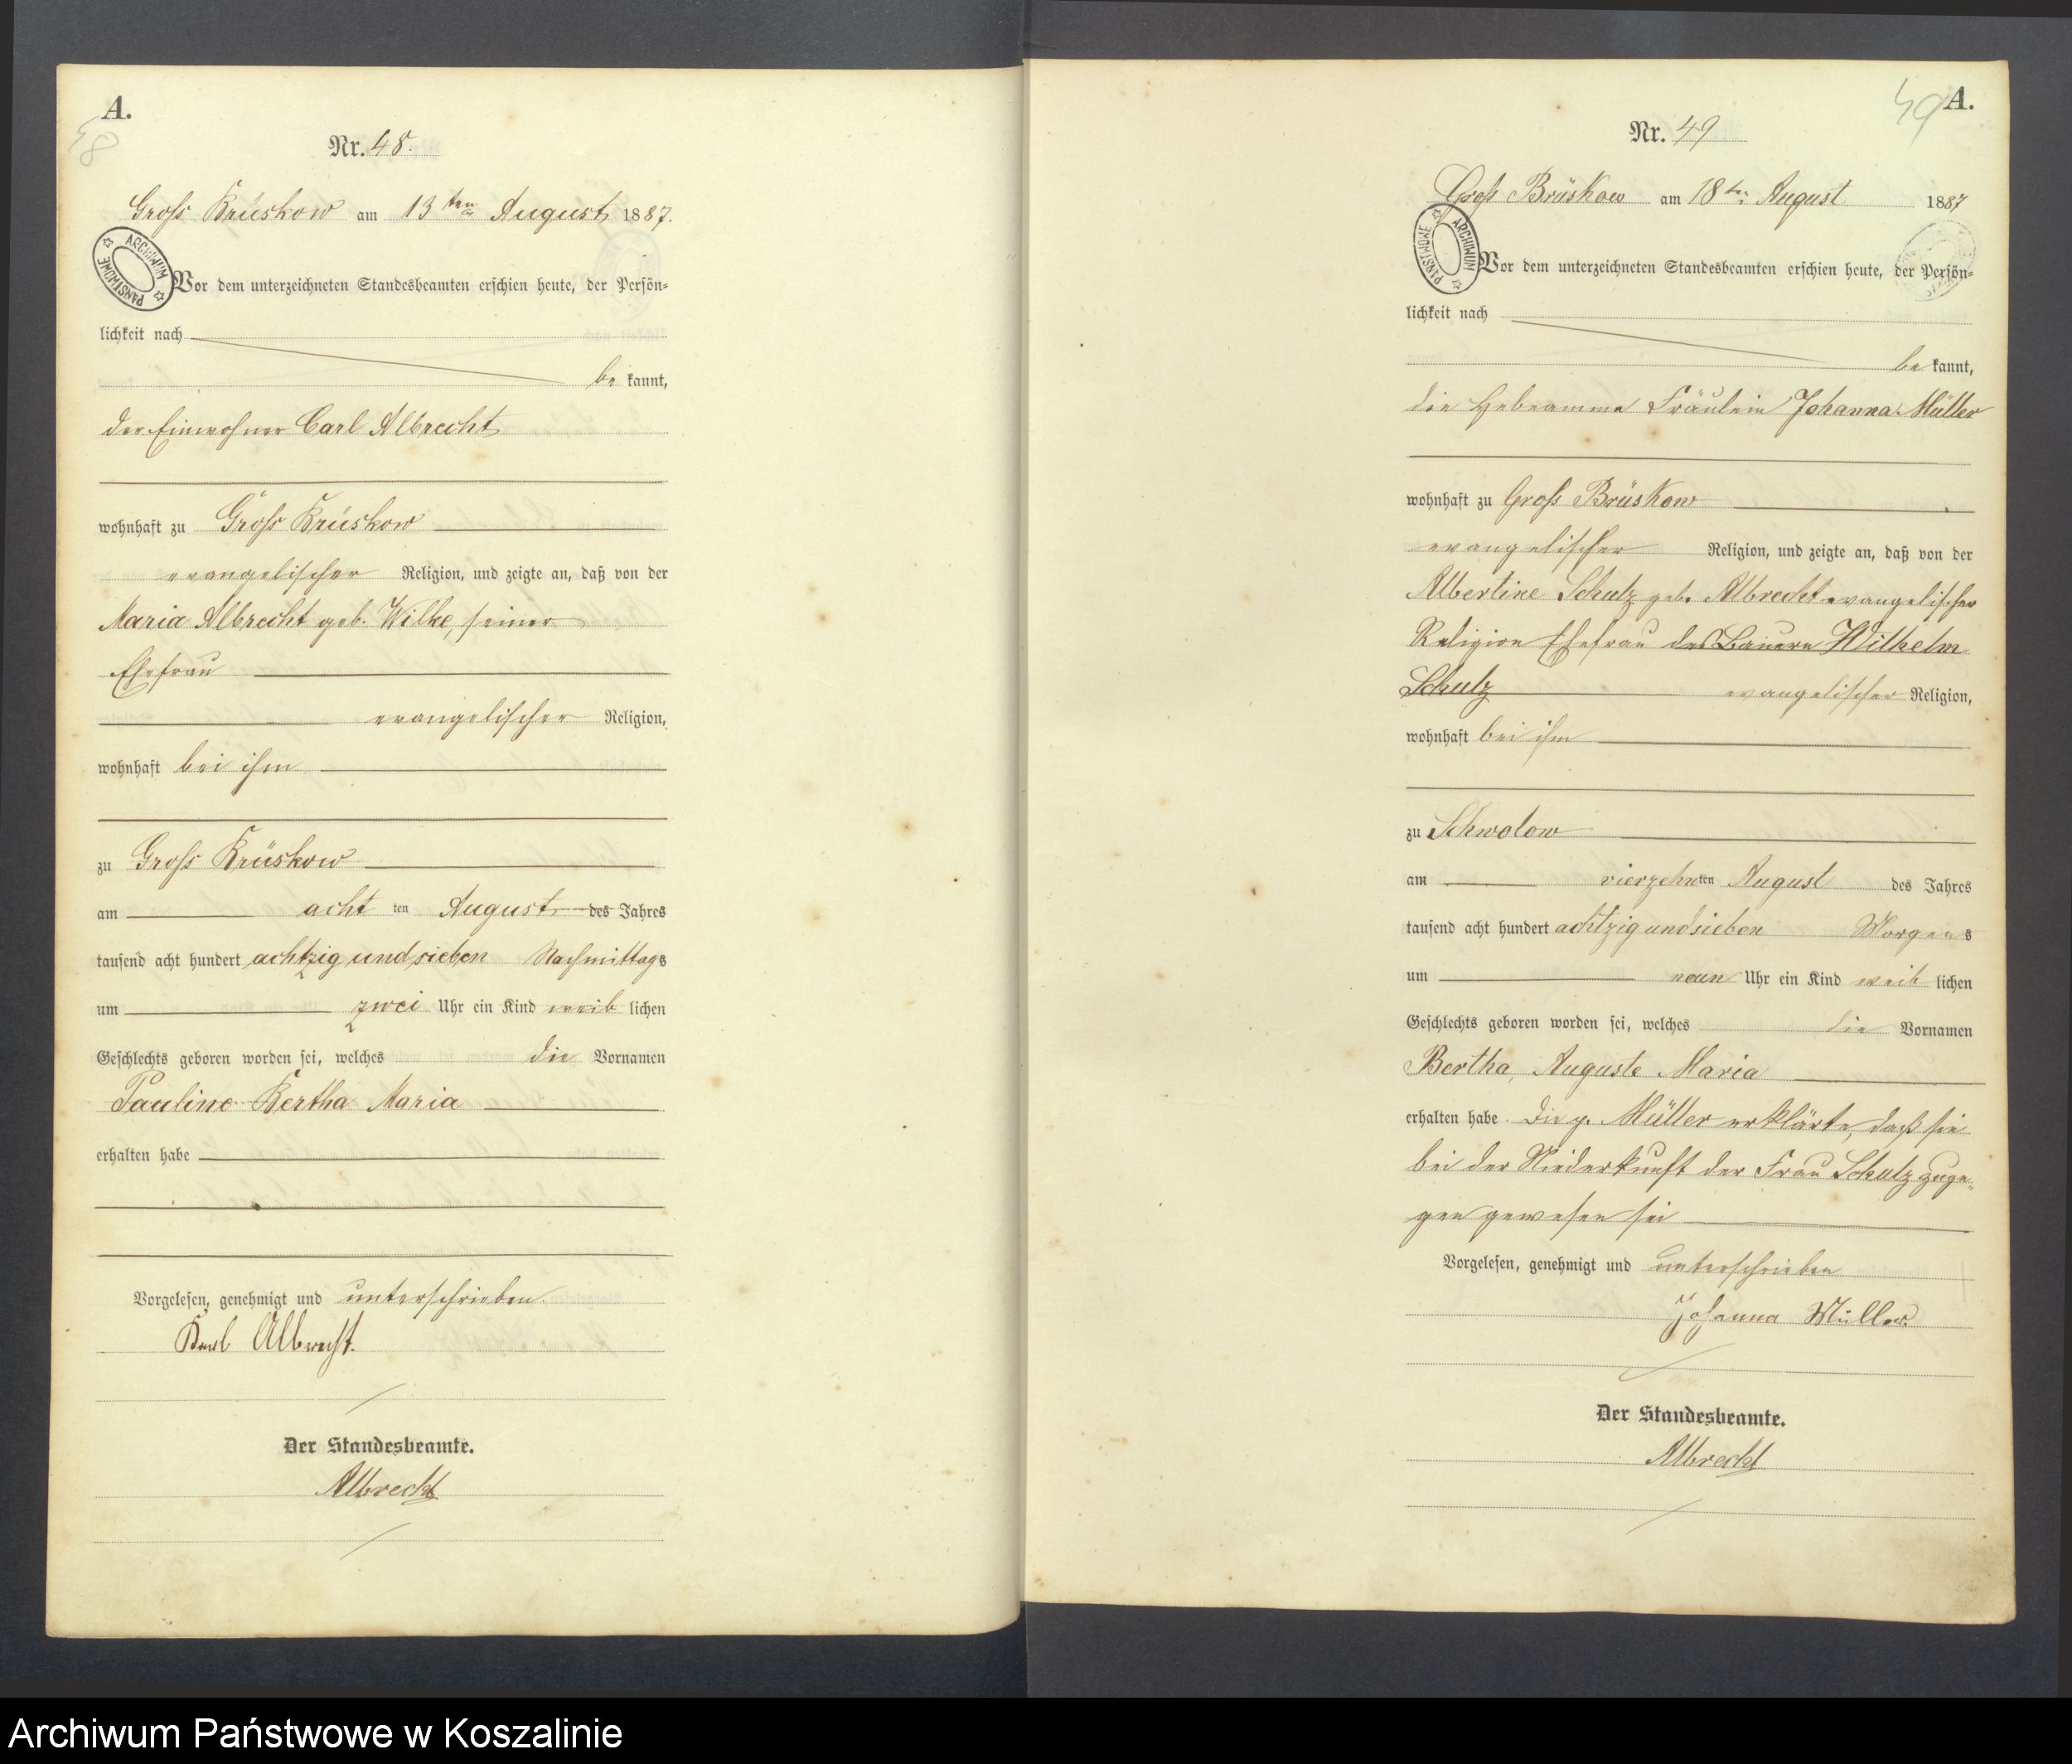 A.
48
Nr. 48.
Groß Brüskow am 13ten August 1887.
ARCHIWUM PAŃSTWOWE
Vor dem unterzeichneten Standesbeamten erschien heute, der Persön=
lichkeit nach
be kannt,
der Einwohner Carl Albrecht
wohnhaft zu Groß Brüskow
evangelischer Religion, und zeigte an, daß von der
Maria Albrecht geb. Wilke, seiner
Ehefrau
evangelischer Religion,
wohnhaft bei ihm
zu Groß Brüskow
am acht ten August des Jahres
tausend acht hundert achtzig und sieben Nachmittags
um zwei Uhr ein Kind weib lichen
Geschlechts geboren worden sei, welches die Vornamen
Pauline Bertha Maria
erhalten habe
Vorgelesen, genehmigt und unterschrieben.
Karl Albrecht.
Der Standesbeamte.
Albrecht
49
A.
Nr. 49
Groß Brüskow am 18ten August 1887
ARCHIWUM PAŃSTWOWE
Vor dem unterzeichneten Standesbeamten erschien heute, der Persön=
lichkeit nach
be kannt,
die Hebeamme Fräulein Johanna Müller
wohnhaft zu Groß Brüskow
evangelischer Religion, und zeigte an, daß von der
Albertine Schulz geb. Albrecht evangelischer
Religion Ehefrau des Bauern Wilhelm
Schulz evangelischer Religion,
wohnhaft bei ihm
zu Schwolow
am vierzehnten August des Jahres
tausend acht hundert achtzig und sieben Morgens
um neun Uhr ein Kind weib lichen
Geschlechts geboren worden sei, welches die Vornamen
Bertha, Auguste Maria
erhalten habe. Die p. Müller erklärte, daß sie
bei der Niederkunft der Frau Schulz zuge=
gen gewesen sei
Vorgelesen, genehmigt und unterschrieben
Johanna Müller.
Der Standesbeamte.
Albrecht
Archiwum Państwowe w Koszalinie